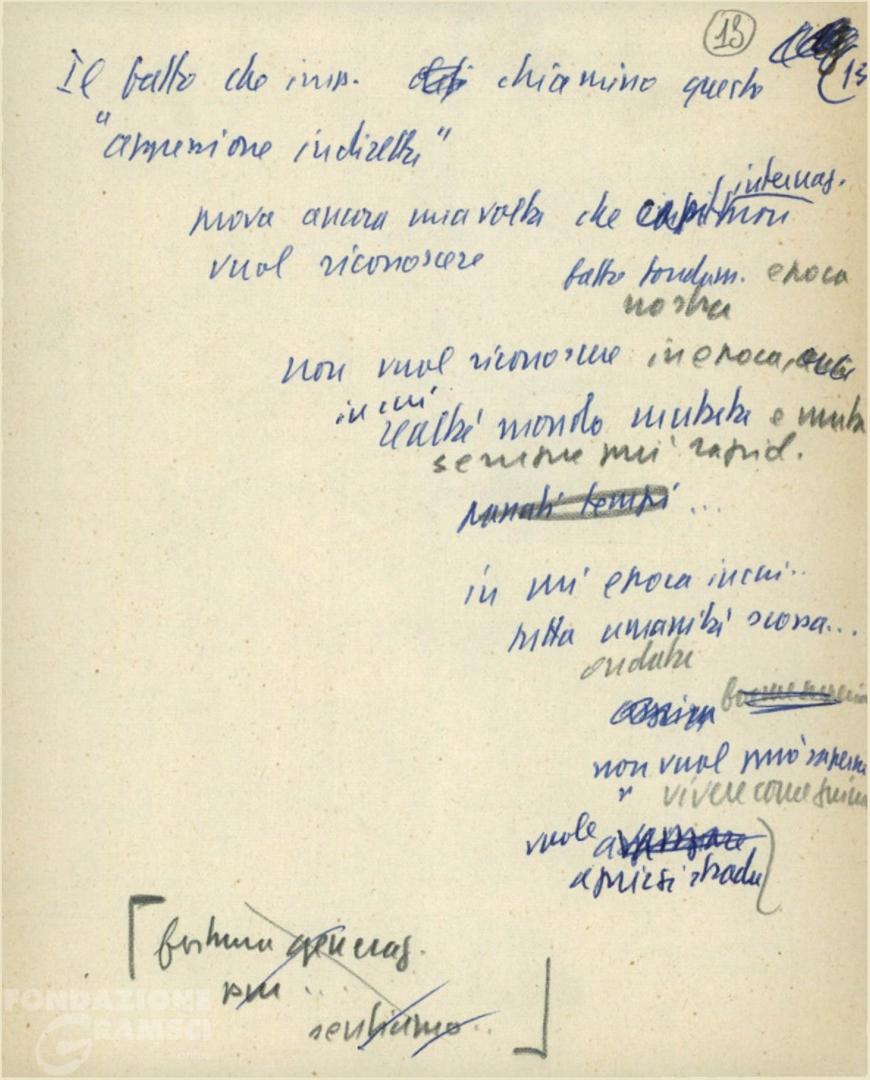 13
13
Il fatto che imp. chiamino questo
"aggressione indiretta"
internaz.
prova ancora una volta che non
vuol riconoscere fatto fondam. epoca
nostra
non vuol riconoscere in epoca,
in cui
realtà mondo mutata e muta
sempre più rapid.
passati tempi ...
in cui epoca in cui..
tutta umanità scossa...
ondata
non vuol più saperne
" vivere come prima
vuole avanzare
aprirsi strada
fortuna generaz.
più ...
sentiamo..
FONDAZIONE
GRAMSCI